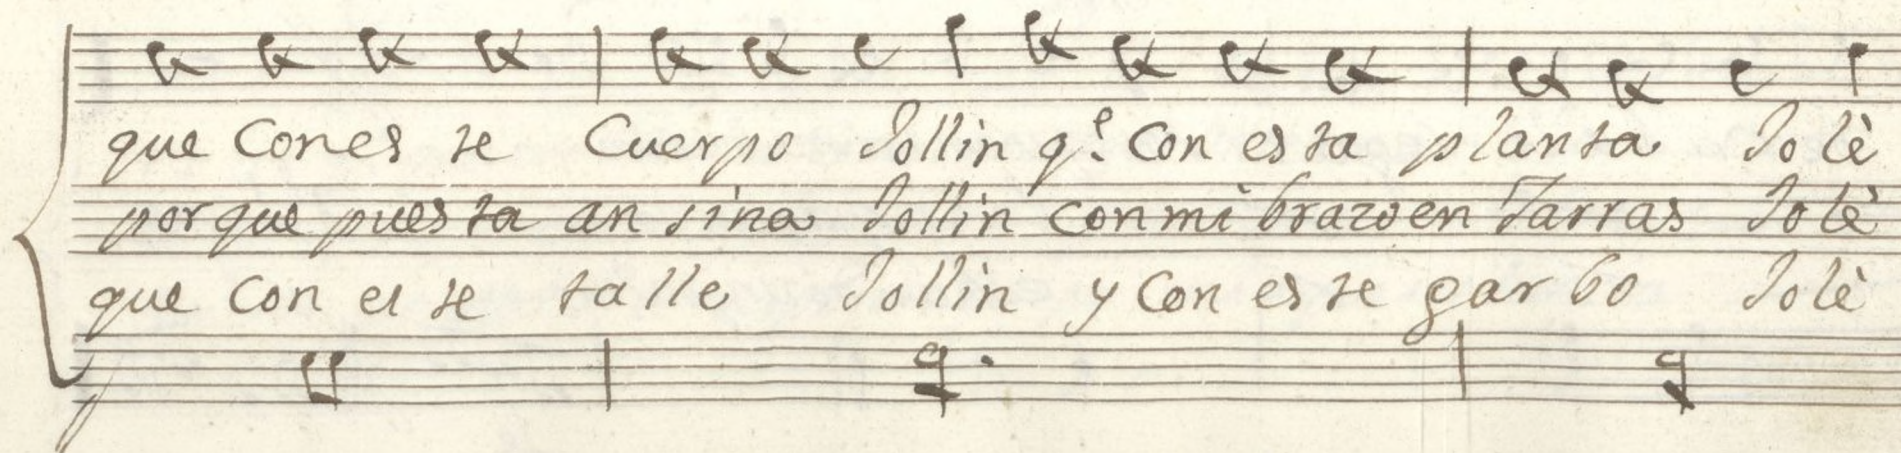 que Con es te Cuerpo Jollin q.e Con es ta planta Jolè
por que pues ta an sina Jollin con mi brazo en Jarras Jolè
que Con es te talle Jollin y Con es te garbo Jolè